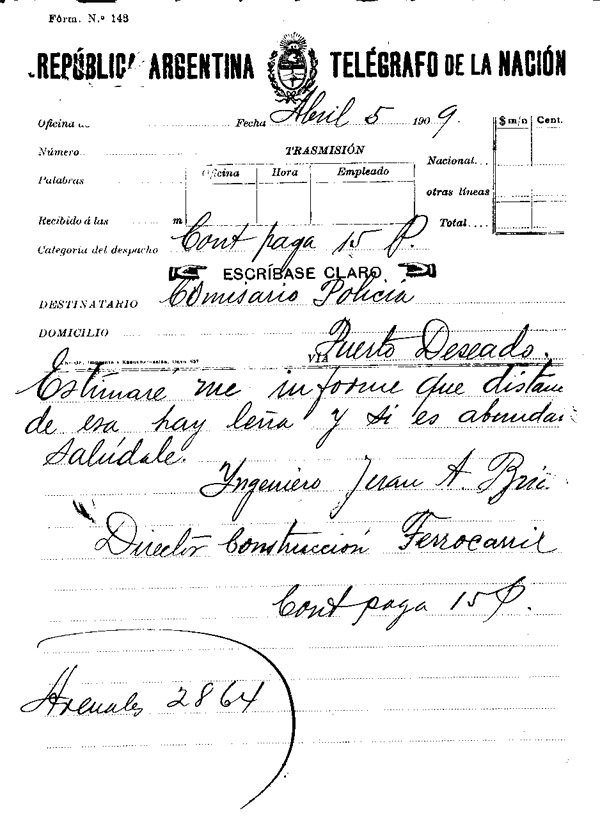 Fórm. N.º 143
REPÚBLICA ARGENTINA TELÉGRAFO DE LA NACIÓN
Oficina de Fecha Abril 5 1909.
$ m/n Cent.
Número TRASMISIÓN
Oficina Hora Empleado
Nacional
Palabras
otras líneas
Recibido á las m
Total
Categoría del despacho Cont paga 15 P.
ESCRÍBASE CLARO
DESTINATARIO Comisario Policia
DOMICILIO
VIA Puerto Deseado.
Estimaré me informe que distan
de esa hay leña y si es abundan
Salúdale.
Ingeniero Juan A. Bric.
Director Construcción Ferrocarril
Cont paga 15 P.
Arenales 2864